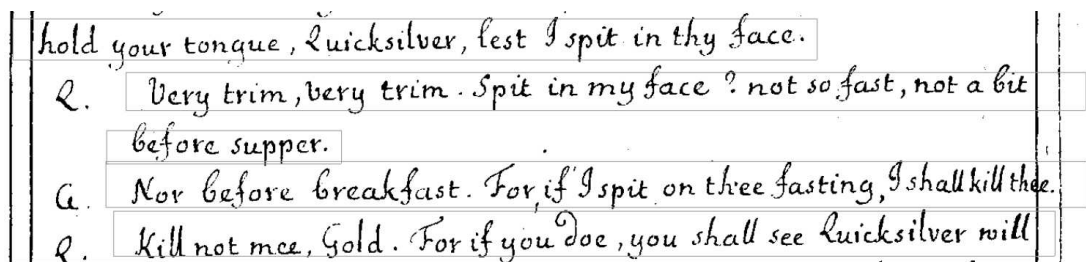 hold your tongue, Quicksilver, lest I spit in thy face.
Q. Very trim, very trim. Spit in my face? not so fast, not a bit
before supper.
G. Nor before breakfast. For, if I spit on thee fasting, I shall kill thee.
Q. Kill not mee, Gold. For if you doe, you shall see Quicksilver will